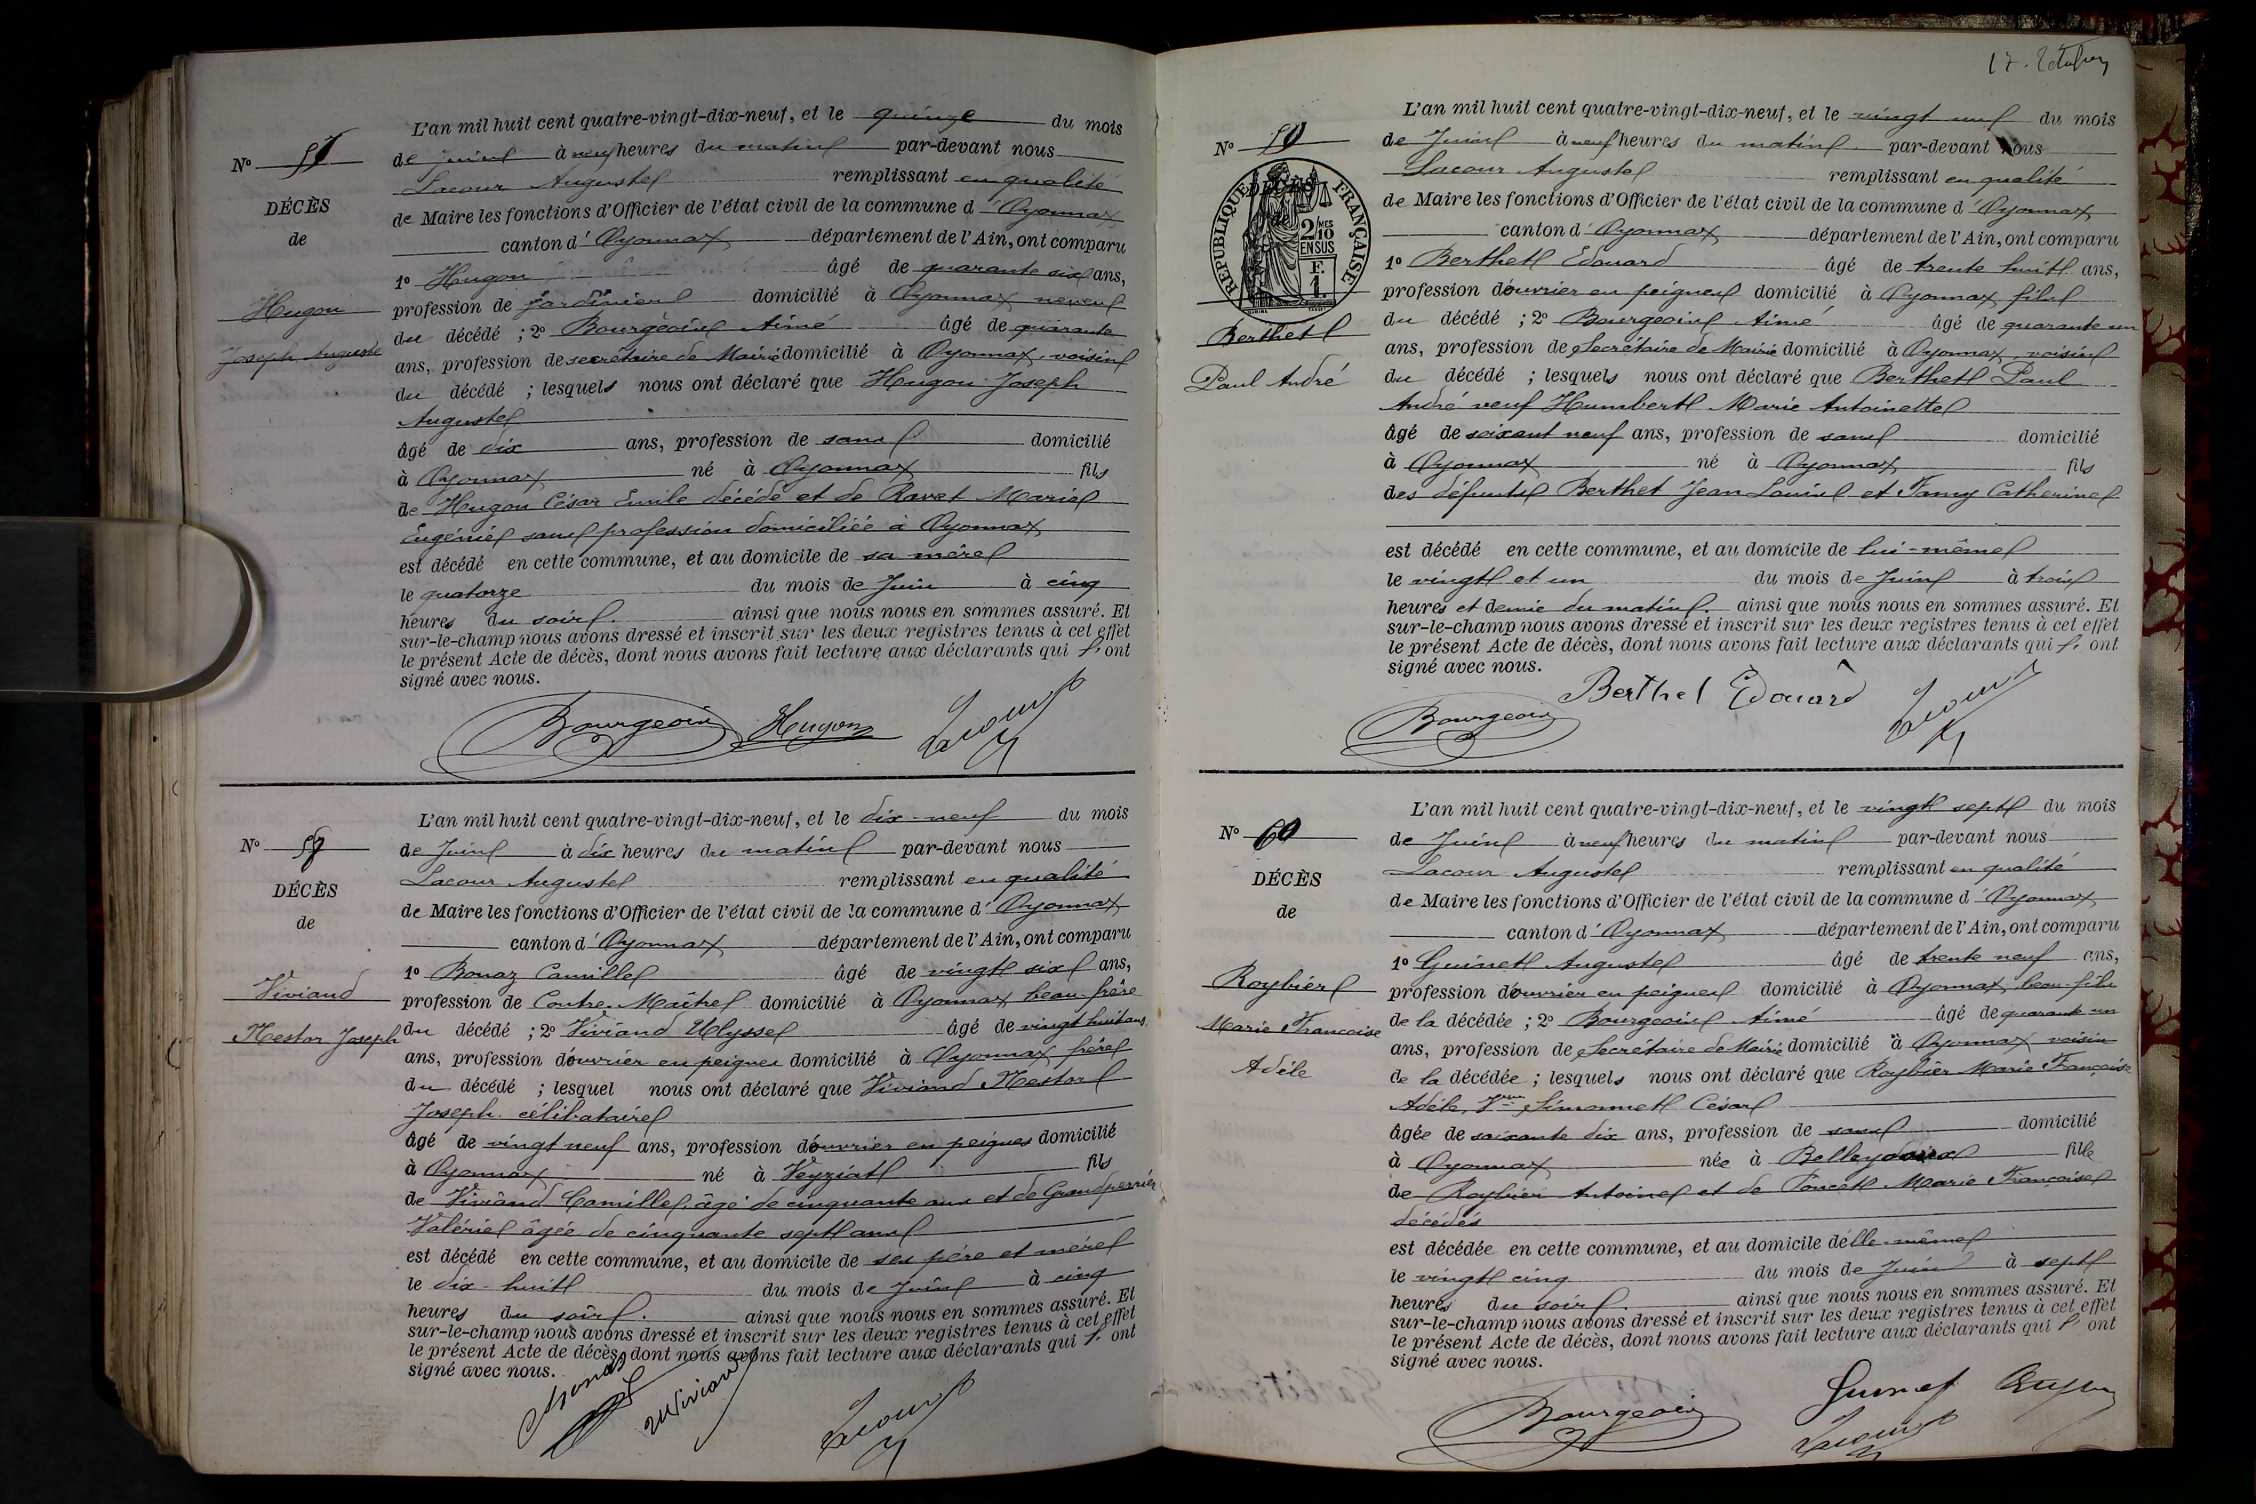 L'an mil huit cent quatre-vingt-dix-neuf, et le quinze du mois
N°
de Juin à neuf heures du matin par-devant nous
Lacour Auguste remplissant en qualité
DÉCÈS
de Maire les fonctions d'Officier de l'état civil de la commune d'Oyonnax
de
canton d'Oyonnax département de l'Ain, ont comparu
1° Hugon âgé de quarante six ans,
Hugon
profession de jardinier domicilié à Oyonnax neveu
du décédé ; 2° Bourgeois Aimé âgé de quarante
Joseph Auguste
ans, profession de secrétaire de Mairie domicilié à Oyonnax, voisin
du décédé ; lesquels nous ont déclaré que Hugon Joseph
Auguste
âgé de dix ans, profession de sans domicilié
à Oyonnax né à Oyonnax fils
de Hugon César Emile décédé et de Ravet Marie
Eugénie sans profession domiciliée à Oyonnax
est décédé en cette commune, et au domicile de sa mère
le quatorze du mois de Juin à cinq
heures du soir. ainsi que nous nous en sommes assuré. Et
sur-le-champ nous avons dressé et inscrit sur les deux registres tenus à cet effet
le présent Acte de décès, dont nous avons fait lecture aux déclarants qui ont
signé avec nous.
Bourgeois Hugon Lacour
L'an mil huit cent quatre-vingt-dix-neuf, et le dix-neuf du mois
N°
de Juin à dix heures du matin par-devant nous
Lacour Auguste remplissant en qualité
DÉCÈS
de Maire les fonctions d'Officier de l'état civil de la commune d'Oyonnax
de
canton d'Oyonnax département de l'Ain, ont comparu
1° Bonaz Camille âgé de vingt six ans,
Viviand
profession de Contre-Maître domicilié à Oyonnax beau-frère
Nestor Joseph
du décédé ; 2° Viviand Ulysse âgé de vingt huit ans
ans, profession d'ouvrier en peignes domicilié à Oyonnax frère
du décédé ; lesquel nous ont déclaré que Viviand Nestor
Joseph célibataire
âgé de vingt neuf ans, profession d'ouvrier en peignes domicilié
à Oyonnax né à Veyziat fils
de Viviand Camille, âgé de cinquante ans et de Grandperrier
Valérie âgée de cinquante sept ans
est décédé en cette commune, et au domicile de ses père et mère
le dix-huit du mois de Juin à cinq
heures du soir. ainsi que nous nous en sommes assuré. Et
sur-le-champ nous avons dressé et inscrit sur les deux registres tenus à cet effet
le présent Acte de décès, dont nous avons fait lecture aux déclarants qui ont
signé avec nous.
Bonaz Viviand Lacour
L'an mil huit cent quatre-vingt-dix-neuf, et le vingt un du mois
N°
de Juin à neuf heures du matin par-devant nous
Lacour Auguste remplissant en qualité
RÉPUBLIQUE FRANÇAISE
DÉCÈS
de
2/10 MES
EN SUS
F.
1.
de Maire les fonctions d'Officier de l'état civil de la commune d'Oyonnax
canton d'Oyonnax département de l'Ain, ont comparu
1° Berthet Edouard âgé de trente huit ans,
profession d'ouvrier en peignes domicilié à Oyonnax, fils
Berthet
du décédé ; 2° Bourgeois Aimé âgé de quarante un
ans, profession de Secrétaire de Mairie domicilié à Oyonnax, voisin
Paul André
du décédé ; lesquels nous ont déclaré que Berthet Paul
André veuf Humbert Marie Antoinette
âgé de soixant neuf ans, profession de sans domicilié
à Oyonnax né à Oyonnax fils
des défunts Berthet Jean Louis et Famy Catherine
est décédé en cette commune, et au domicile de lui-même
le vingt et un du mois de Juin à trois
heures et demie du matin. ainsi que nous nous en sommes assuré. Et
sur-le-champ nous avons dressé et inscrit sur les deux registres tenus à cet effet
le présent Acte de décès, dont nous avons fait lecture aux déclarants qui ont
signé avec nous.
Bourgeois Berthet Edouard Lacour
L'an mil huit cent quatre-vingt-dix-neuf, et le vingt sept du mois
N° 60
de Juin à neuf heures du matin par-devant nous
Lacour Auguste remplissant en qualité
DÉCÈS
de Maire les fonctions d'Officier de l'état civil de la commune d'Oyonnax
de
canton d'Oyonnax département de l'Ain, ont comparu
1° Guinet Auguste âgé de trente neuf ans,
Roybier
profession d'ouvrier en peignes domicilié à Oyonnax, beau-fils
Marie Francoise
de la décédée ; 2° Bourgeois Aimé âgé de quarante un
ans, profession de Secrétaire de Mairie domicilié à Oyonnax voisin
Adèle
de la décédée ; lesquels nous ont déclaré que Roybier Marie Françoise
Adèle, Vve Simonnet César
âgée de soixante dix ans, profession de sans domicilié
à Oyonnax née à Belleydoux fille
de Roybier Antoine et de Poncet Marie Françoise
décédés
est décédée en cette commune, et au domicile d'elle-même
le vingt cinq du mois de Juin à sept
heures du soir. ainsi que nous nous en sommes assuré. Et
sur-le-champ nous avons dressé et inscrit sur les deux registres tenus à cet effet
le présent Acte de décès, dont nous avons fait lecture aux déclarants qui ont
signé avec nous.
Bourgeois Guinet Lacour